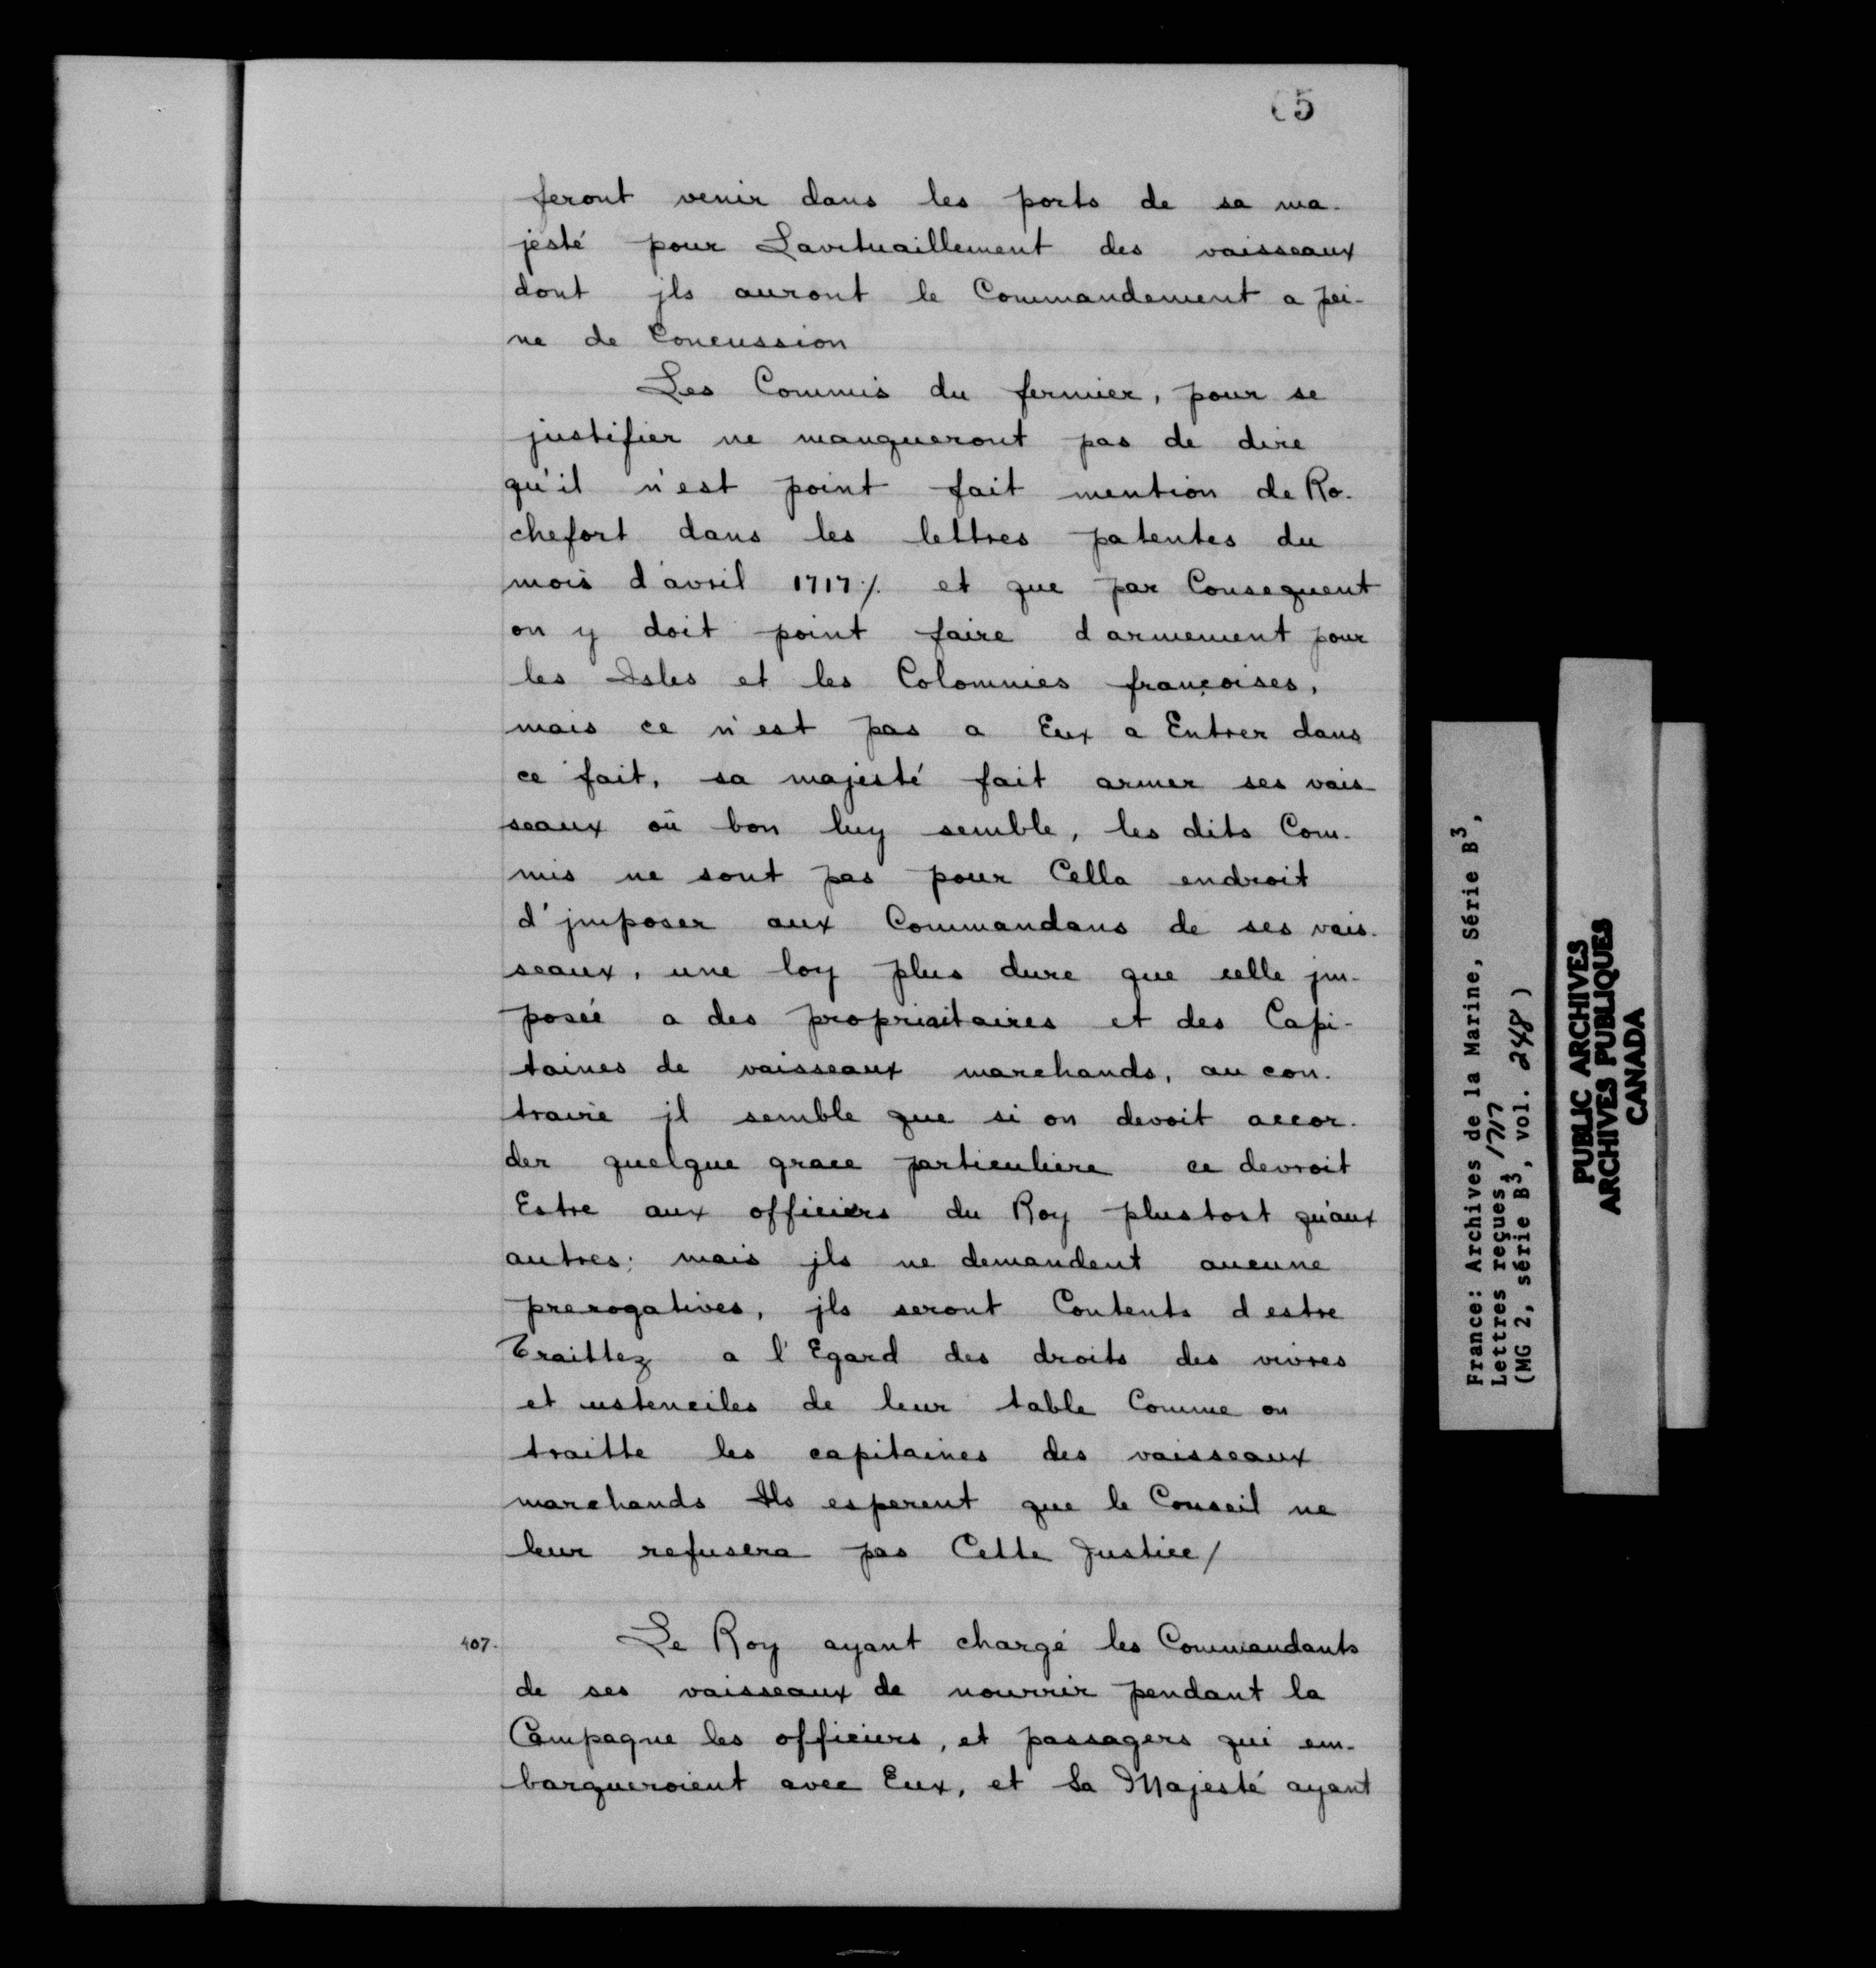 65
feront venir dans les ports de sa ma-
jesté pour Lavituaillement des vaisseaux
dont jls auront le Commandement a pei-
ne de Concussion
Les Commis du fermier, pour se
justifier ne manqueront pas de dire
qu'il n'est point fait mention de Ro-
chefort dans les lettres patentes du
mois d'avril 1717 ·/. et que par Consequent
on y doit point faire d armement pour
les Isles et les Colonnies françoises,
mais ce n'est pas a Eux a Entrer dans
ce fait, sa majesté fait armer ses vais-
seaux où bon luy semble, les dits Com-
mis ne sont pas pour Cella endroit
d'jmposer aux Commandans de ses vais-
seaux, une loy plus dure que celle jm-
posée a des propriaitaires et des Capi-
taines de vaisseaux marchands, au con-
traire jl semble que si on devoit accor-
der quelque grace particuliere ce devroit
Estre aux officiers du Roy plustost qu'aux
autres; mais jls ne demandent aucune
prerogatives, jls seront Contents d estre
Traittez a l'Egard des droits des vivres
et ustenciles de leur table Comme on
traitte les capitaines des vaisseaux
marchands Ils esperent que le Conseil ne
leur refusera pas Cette Justice/
407.
Le Roy ayant chargé les Commandants
de ses vaisseaux de nourrir pendant la
Campagne les officiers, et passagers qui em-
barqueroient avec Eux, et Sa Majesté ayant
France: Archives de la Marine, Série B³,
Lettres reçues, 1717
(MG 2, série B³, vol. 248)
PUBLIC ARCHIVES
ARCHIVES PUBLIQUES
CANADA